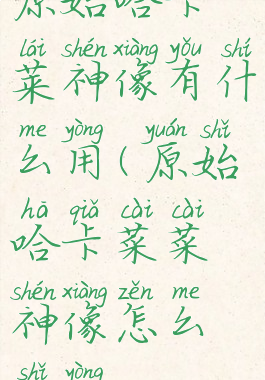 原始哈卡
lái shén xiàng yǒu shí
莱神像有什
me yòng yuán shǐ
么用(原始
hā qiǎ cài cài
哈卡菜菜
shén xiàng zěn me
神像怎么
shǐ yòng